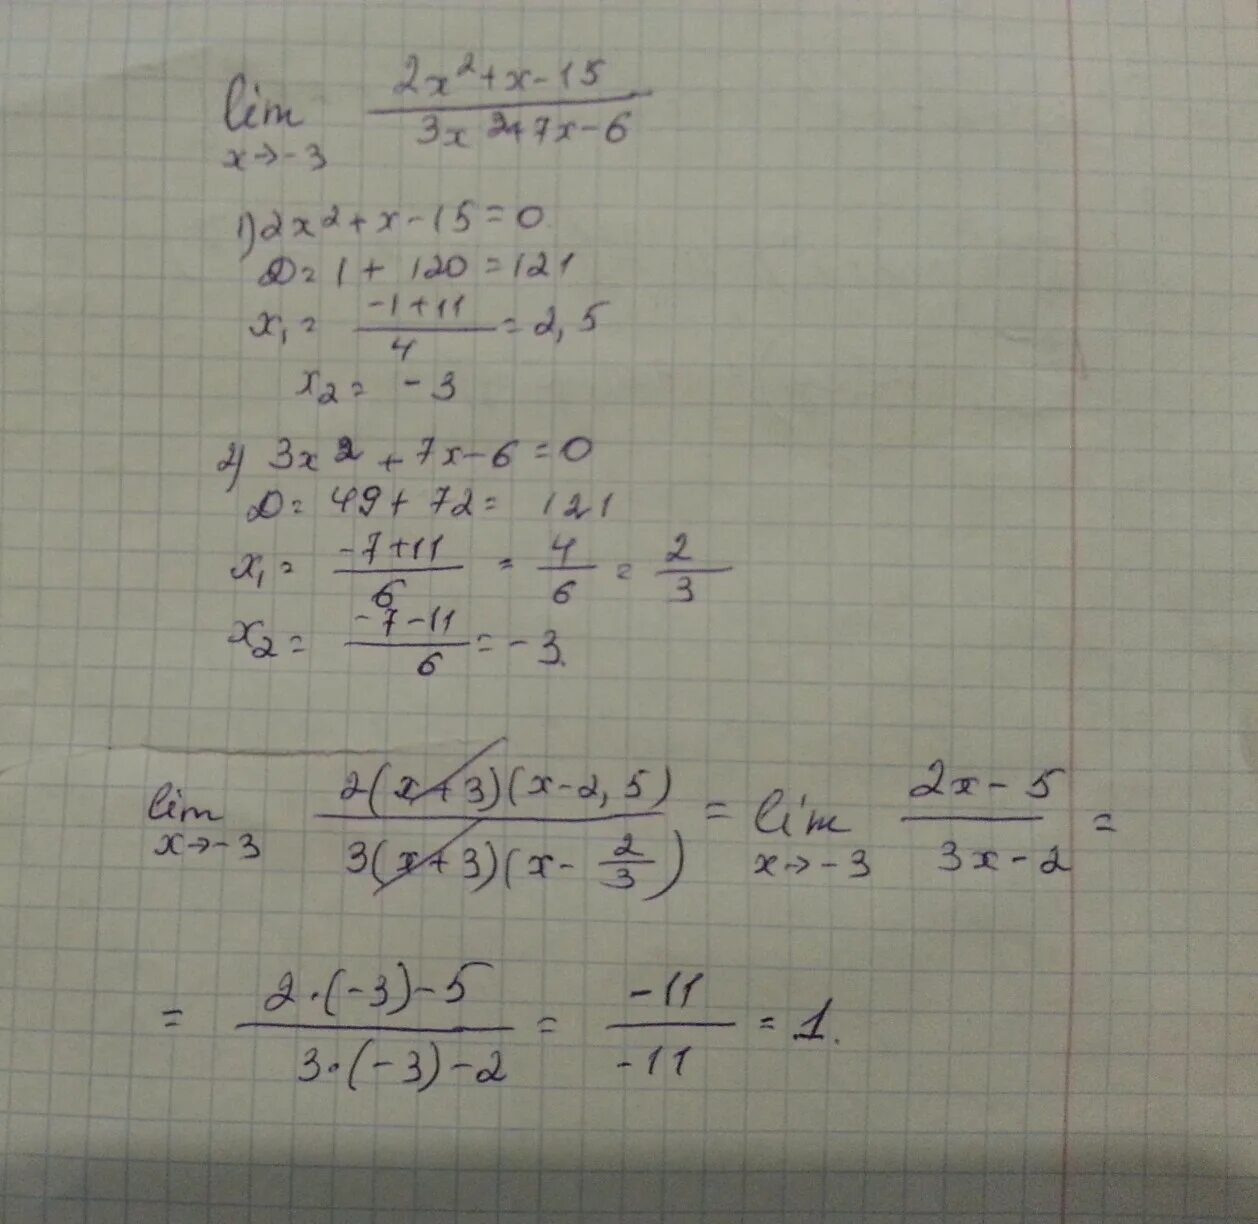 lim 2x²+x-15 / 3x²+7x-6
x→-3
1) 2x²+x-15=0
D=1+120=121
x₁= -1+11 / 4 =2,5
x₂= -3
2) 3x²+7x-6=0
D=49+72=121
x₁= -7+11 / 6 = 4/6 = 2/3
x₂= -7-11 / 6 =-3.
lim 2(x+3)(x-2,5) / 3(x+3)(x-2/3) = lim 2x-5 / 3x-2 =
x→-3 x→-3
= 2·(-3)-5 / 3·(-3)-2 = -11 / -11 =1.